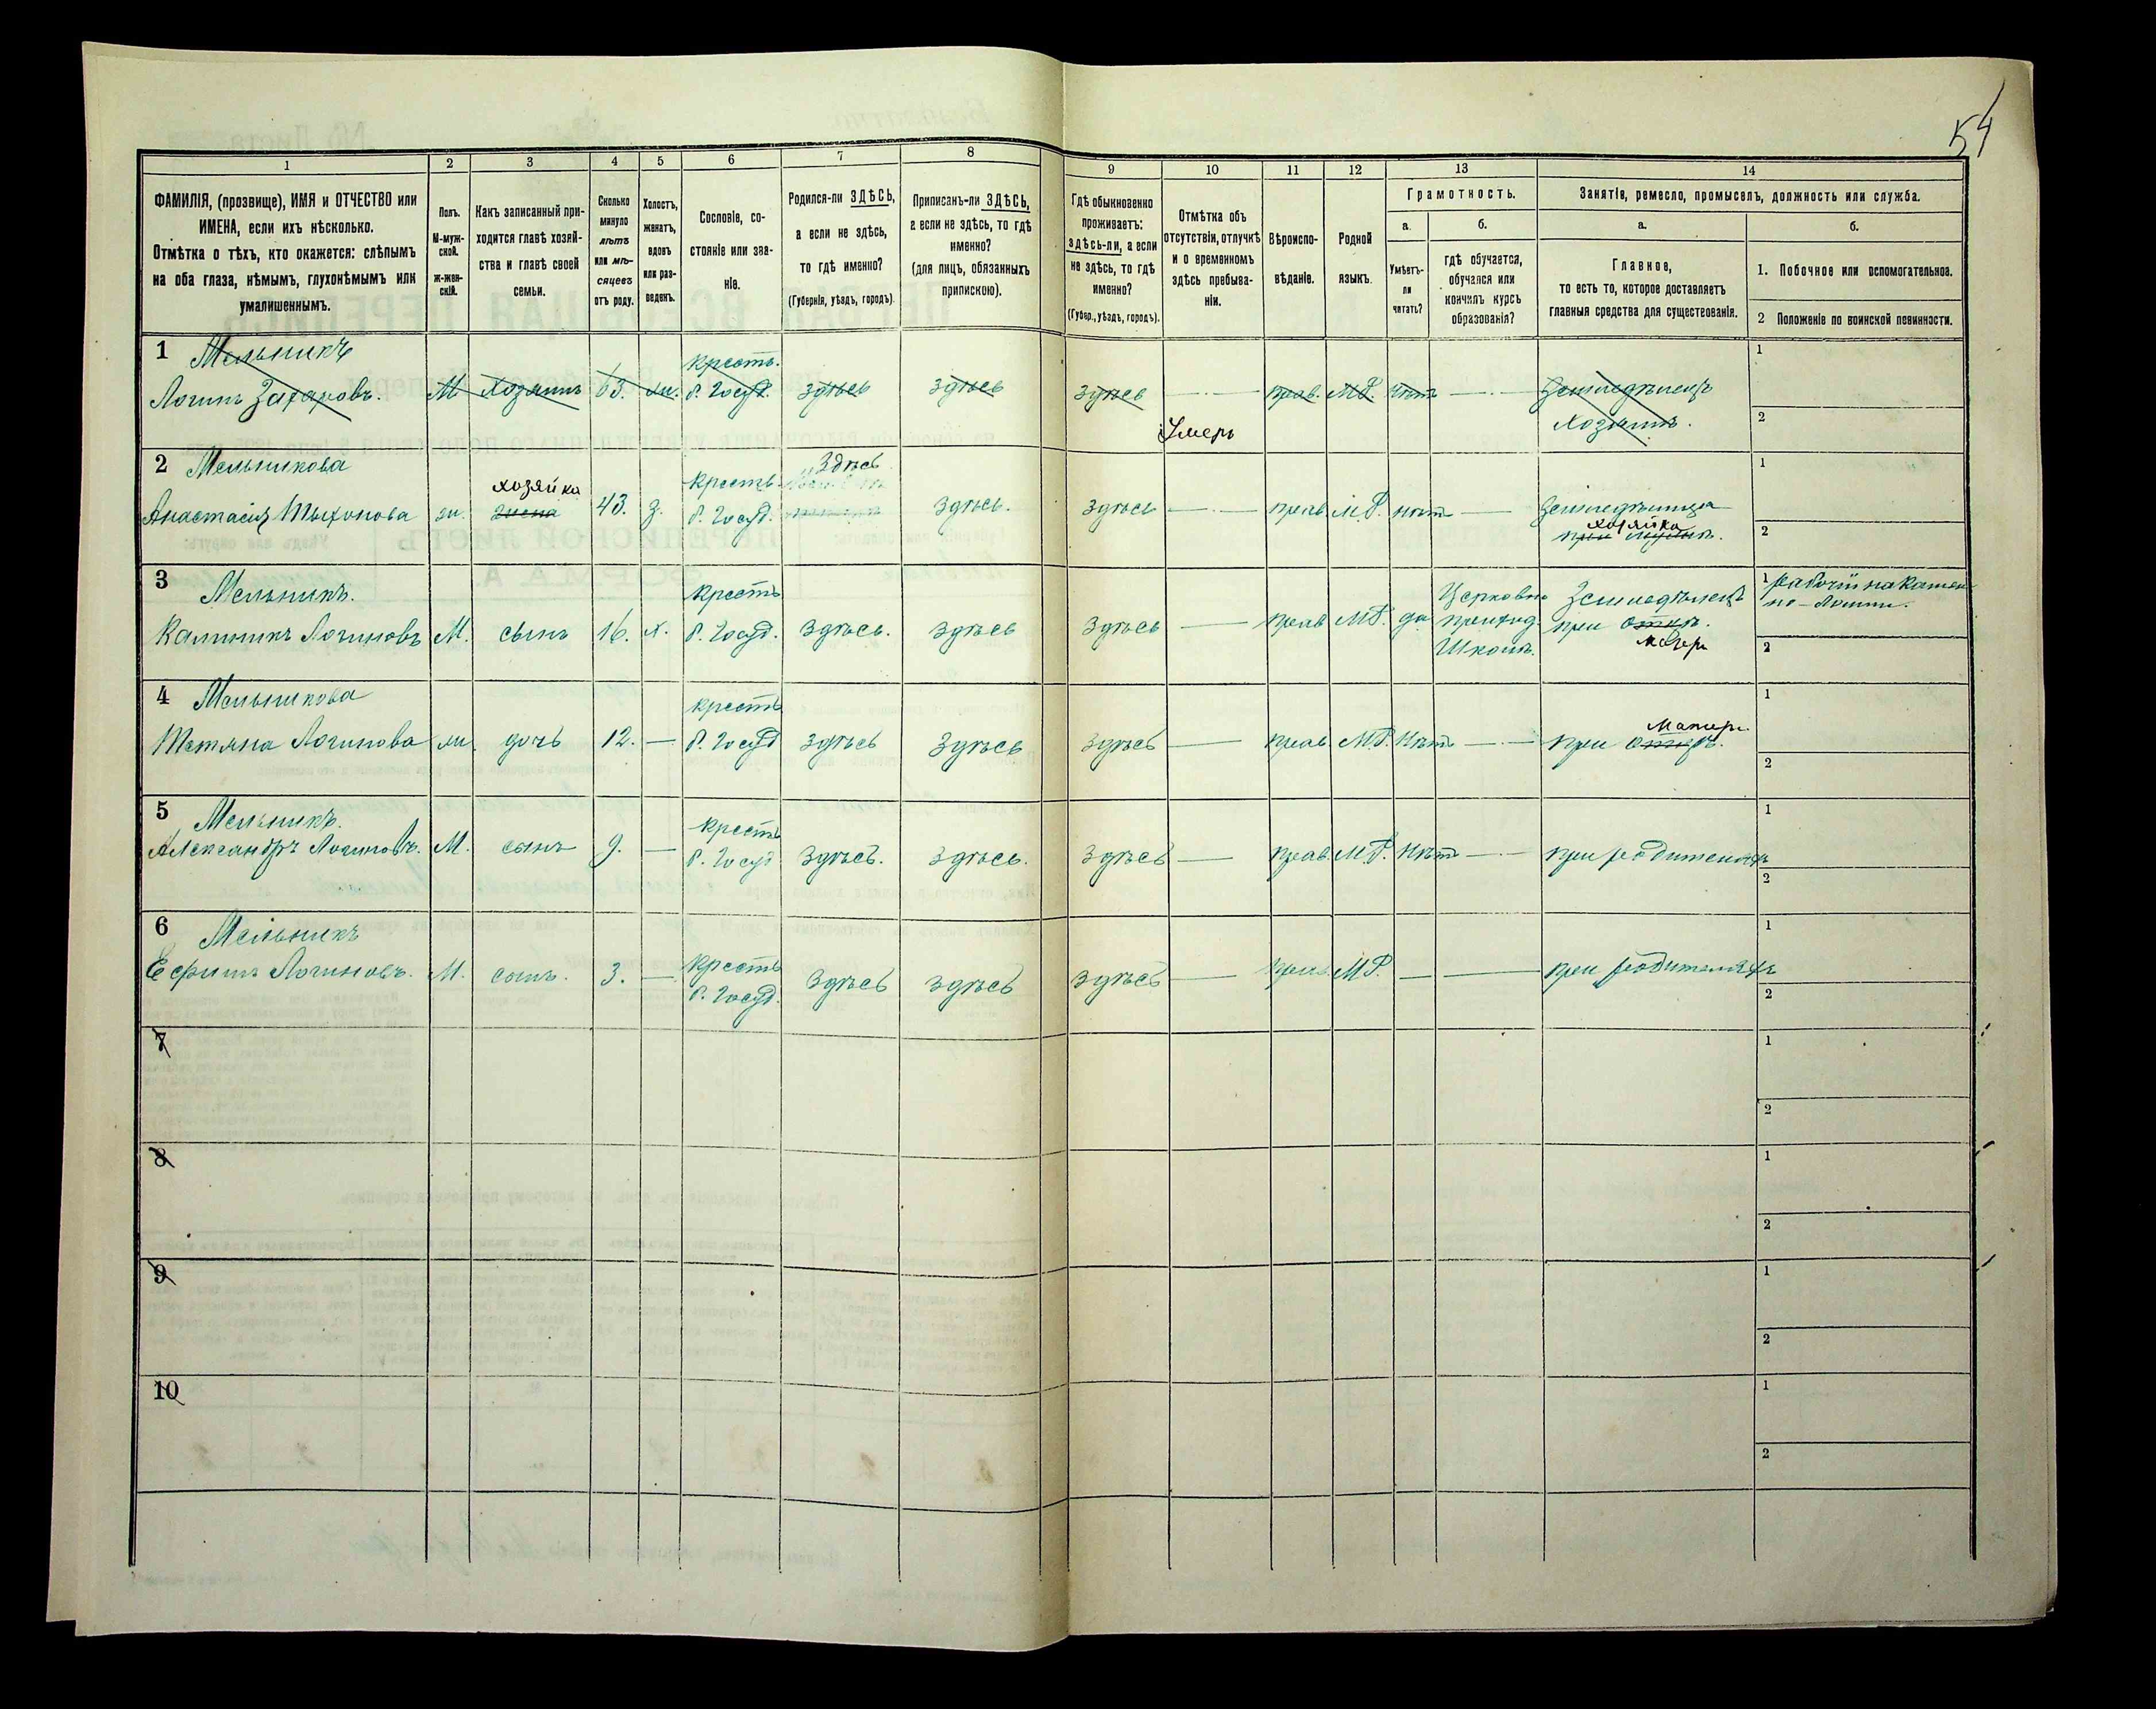 54
1 2 3 4 5 6 7 8 9 10 11 12 13 14
ФАМИЛІЯ, (прозвище), ИМЯ и ОТЧЕСТВО или
ИМЕНА, если ихъ нѣсколько.
Отмѣтка о тѣхъ, кто окажется: слѣпымъ
на оба глаза, нѣмымъ, глухонѣмымъ или
умалишеннымъ.
Полъ.
М-муж-
ской.
ж-жен-
скій.
Какъ записанный при-
ходится главѣ хозяй-
ства и главѣ своей
семьи.
Сколько
минуло
лѣтъ
или мѣ-
сяцевъ
отъ роду.
Холостъ,
женатъ,
вдовъ
или раз-
веденъ.
Сословіе, со-
стояніе или зва-
ніе.
Родился-ли ЗДѢСЬ,
а если не здѣсь,
то гдѣ именно?
(Губернія, уѣздъ, городъ).
Приписанъ-ли ЗДѢСЬ,
а если не здѣсь, то гдѣ
именно?
(для лицъ, обязанныхъ
припискою).
Гдѣ обыкновенно
проживаетъ:
здѣсь-ли, а если
не здѣсь, то гдѣ
именно?
(Губер., уѣздъ, городъ).
Отмѣтка объ
отсутствіи, отлучкѣ
и о временномъ
здѣсь пребыва-
ніи.
Вѣроиспо-
вѣданіе.
Родной
языкъ.
Грамотность.
а.
Умѣетъ-
ли
читать?
б.
гдѣ обучается,
обучался или
кончилъ курсъ
образованія?
Занятіе, ремесло, промыселъ, должность или служба.
а.
Главное,
то есть то, которое доставляетъ
главныя средства для существованія.
б.
1. Побочное или вспомогательное.
2 Положеніе по воинской повинности.
1 Мельникъ
Логинъ Захаровъ.
М
Хозяинъ
63.
жи.
крестъ.
б. Госуд.
здѣсь
здѣсь
здѣсь
Умеръ
прав.
МР.
нѣтъ
Земледѣлецъ
хозяинъ.
1
2
2 Мельникова
Анастасія Тыхонова
жи.
хозяйка
жена
43.
з.
крестъ
б. Госуд.
Здѣсь
здѣсь.
здѣсь
прав.
МР.
нѣтъ
Земледѣлица
хозяйка
при мужѣ.
1
2
3 Мельникъ.
Калиникъ Логиновъ
М.
сынъ
16.
х.
крестъ
б. Госуд.
здѣсь.
здѣсь
здѣсь
прав
МР.
да
Церковно
приход
Школѣ.
Земледѣлецъ
при отцѣ.
матери
1 рабочій на камен
но-ломни.
2
4 Мельникова
Татяна Логинова
жи.
дочь
12.
крестъ
б. Госуд
здѣсь
здѣсь
здѣсь
прав
МР.
Нѣтъ
Матери
при отцѣ.
1
2
5 Мельникъ.
Александръ Логиновъ.
М.
сынъ
9.
крестъ
б. Госуд
здѣсь.
здѣсь.
здѣсь
прав.
МР.
Нѣтъ
при родителяхъ
1
2
6 Мельникъ
Ефимъ Логиновъ.
М.
сынъ.
3.
крестъ
б. Госуд.
здѣсь
здѣсь
здѣсь
прав.
МР.
при родителяхъ
1
2
7
1
2
8
1
2
9
1
2
10
1
2